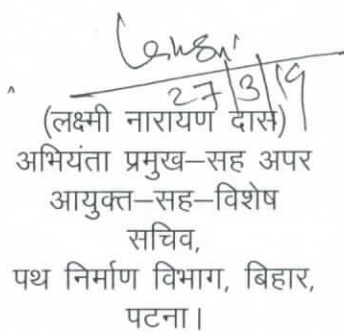 27/3/19
(लक्ष्मी नारायण दास)
अभियंता प्रमुख–सह अपर
आयुक्त–सह–विशेष
सचिव,
पथ निर्माण विभाग, बिहार,
पटना।